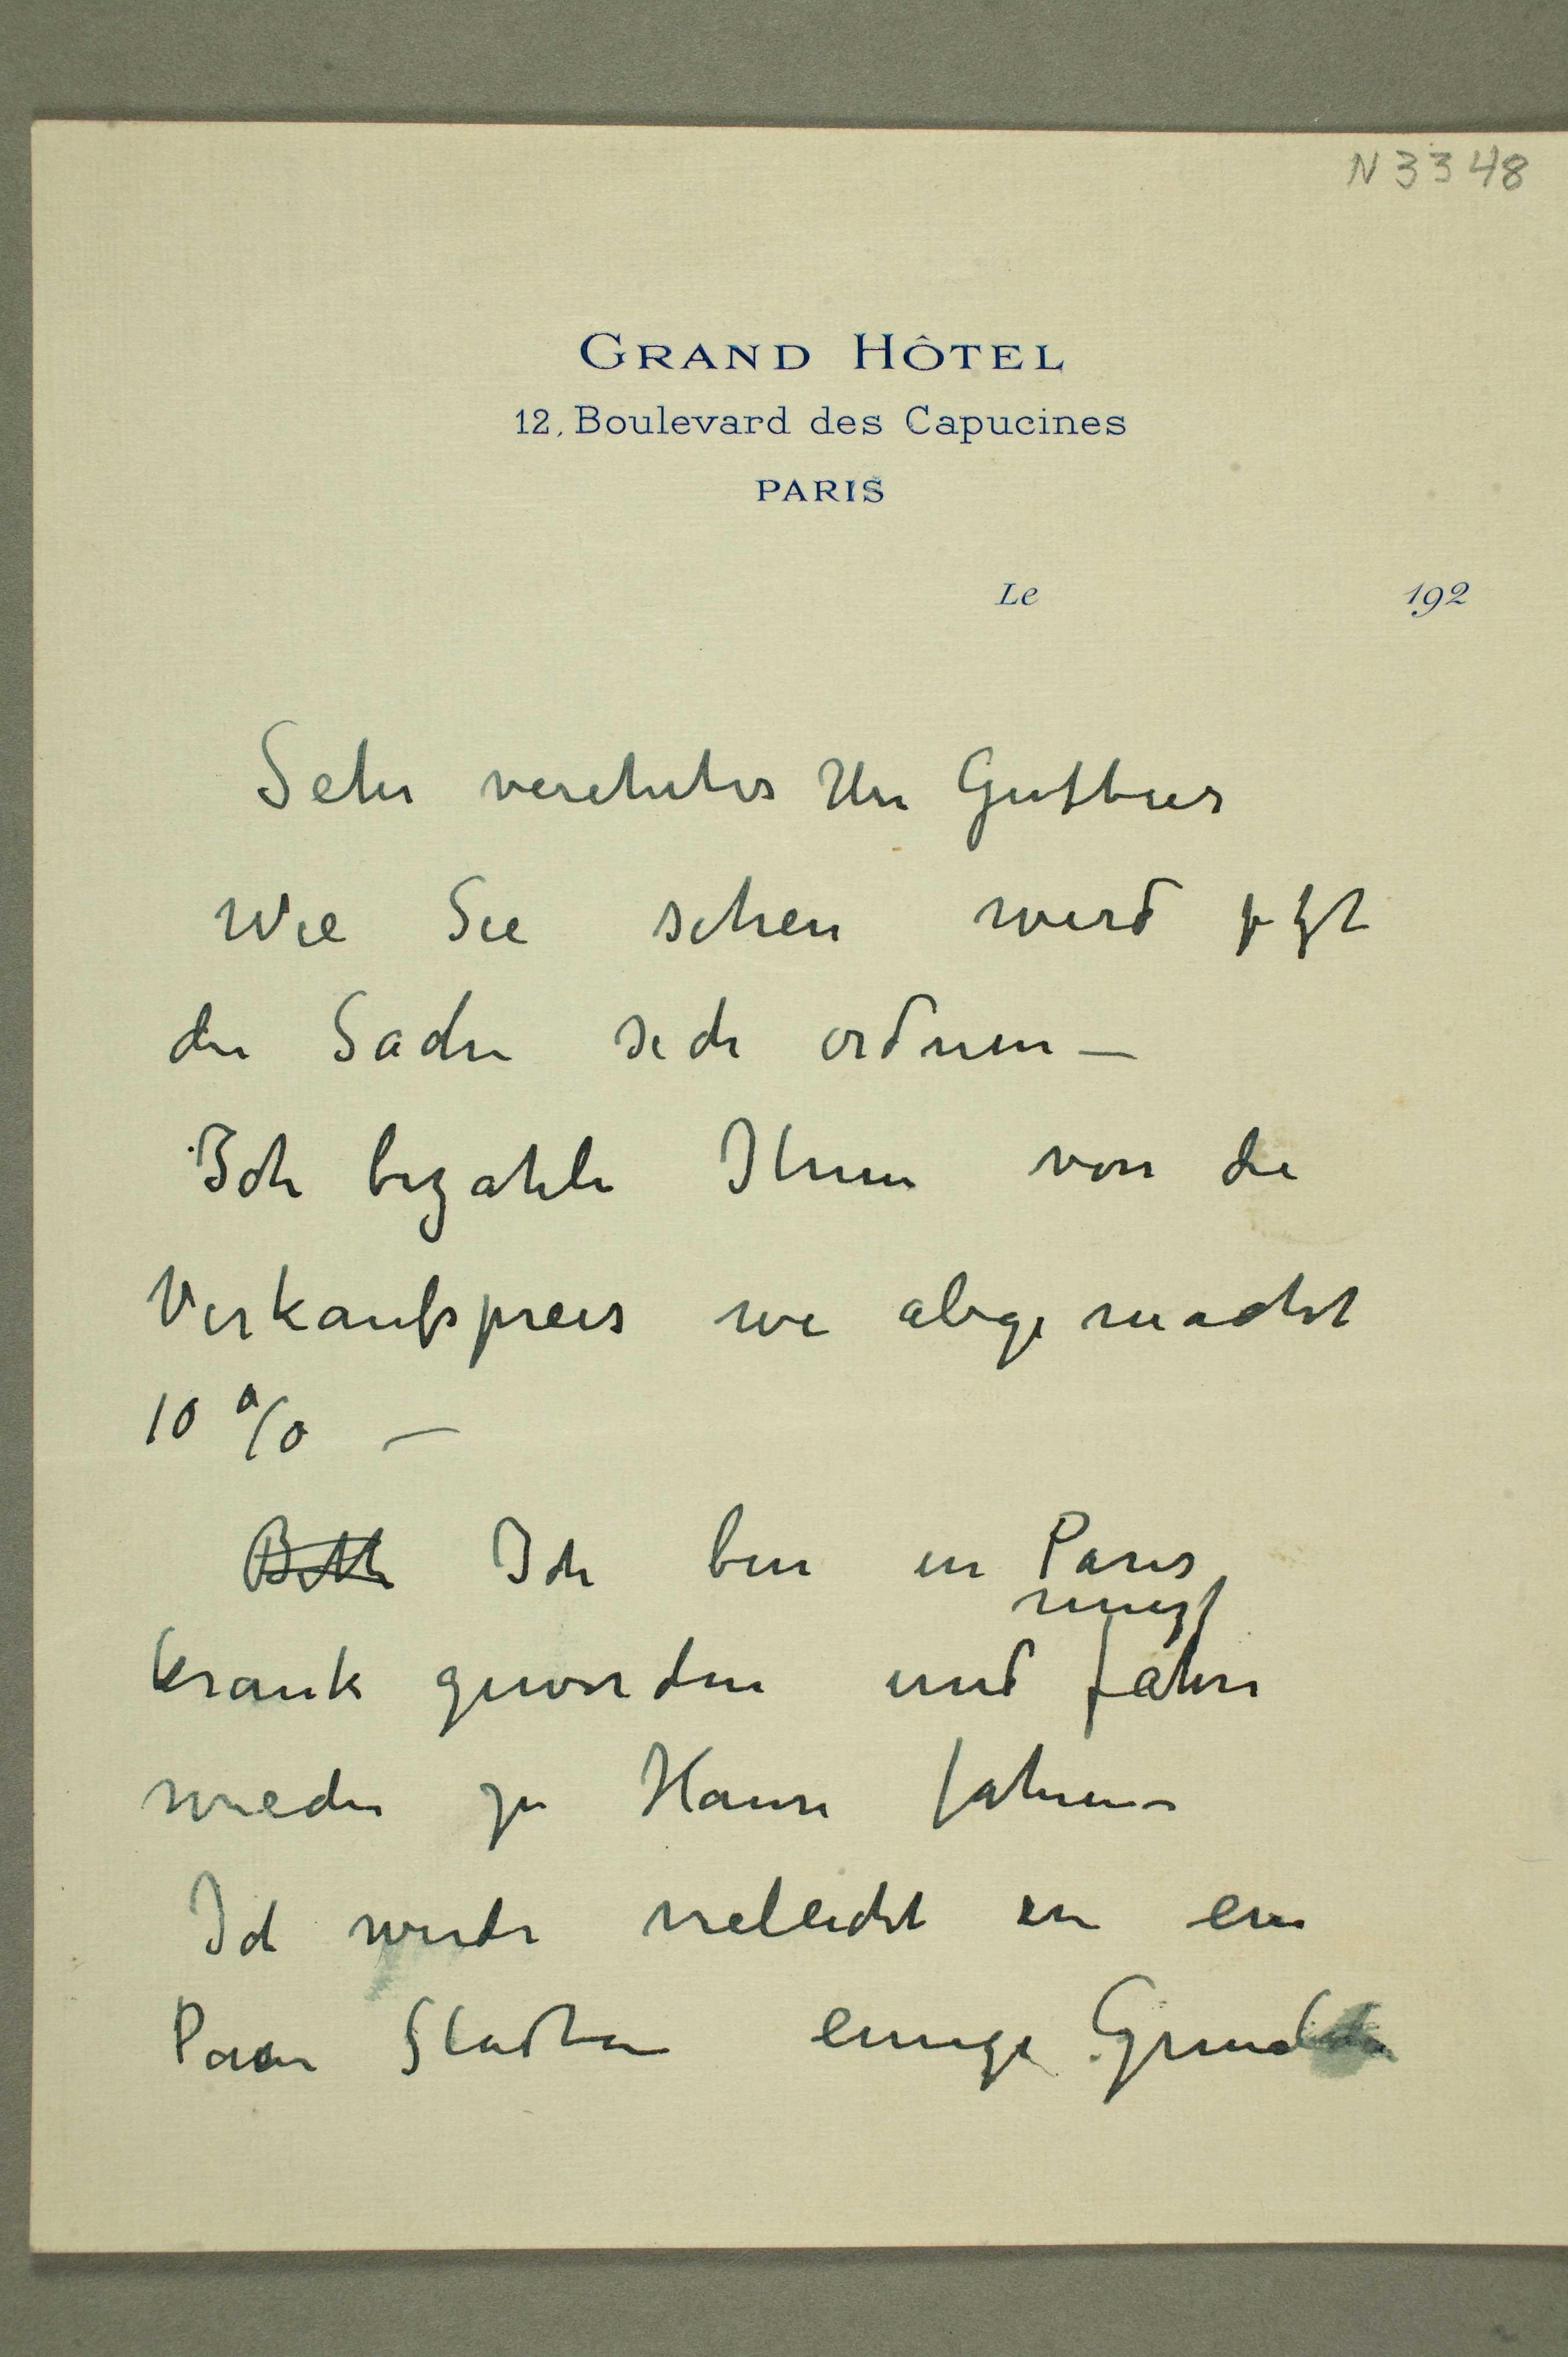 N 3348
GRAND HÔTEL
12, Boulevard des Capucines
PARIS
Le 192
Sehr verehrter Herr Gutbier
Wie Sie sehen wird jetzt
die Sache sich ordnen —
Ich bezahle Ihnen von die
Verkaufspreis wie abgemacht
10 % —
Bitte Ich bin in Paris
krank geworden und fahre
wieder zu Hause fahren
Ich werde vieleicht in ein
Paar Stadten einige